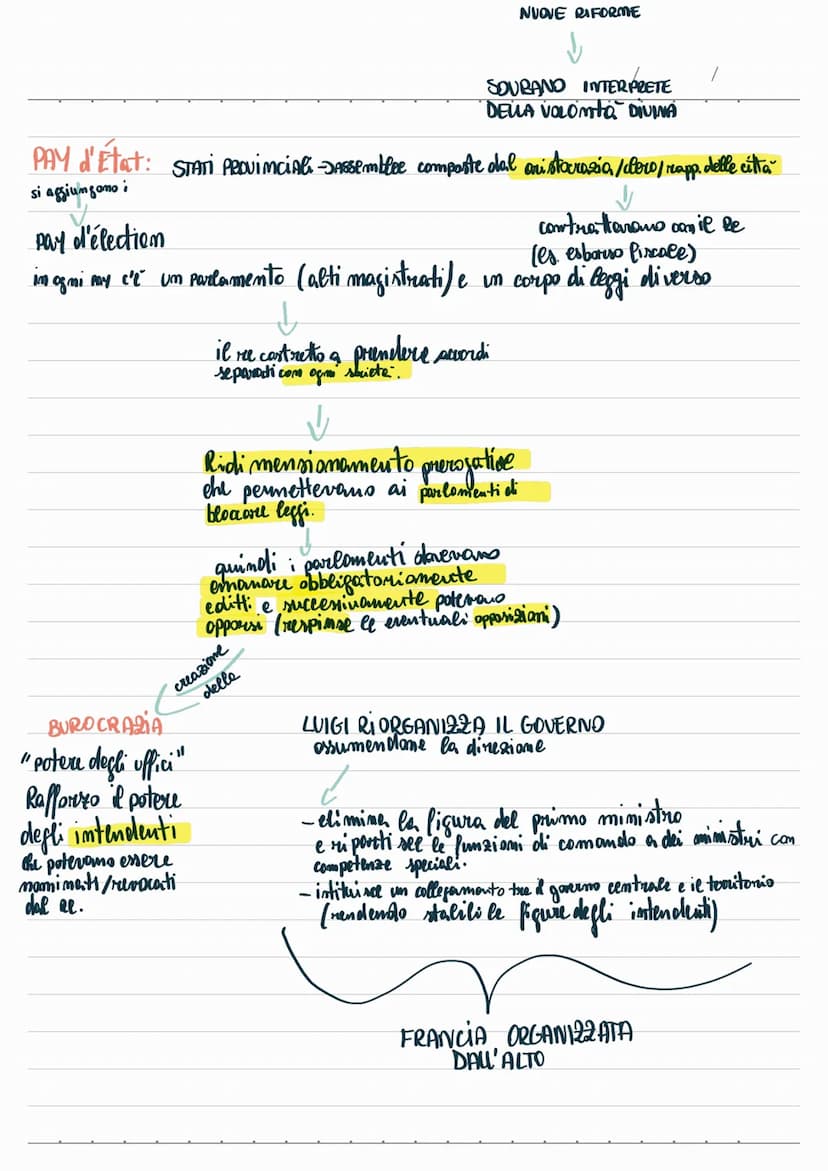 NUOVE RIFORME
SOVRANO INTERPRETE
DELLA VOLONTÀ DIVINA
PAY d'État: STATI PROVINCIALI → ASSEMBLEE composte dal aristocrazia/clero/rapp. delle città
si aggiungono i
contrattavano con il Re
PAY d'élection
(es. esborso fiscale)
in ogni PAY c'è un parlamento (alti magistrati) e un corpo di leggi diverso
il re costretto a prendere accordi
separati con ogni società.
Ridimensionamento prerogative
che permettevano ai parlamenti di
bloccare leggi.
quindi i parlamenti dovevano
emanare obbligatoriamente
editti e successivamente potevano
opporsi (respinse le eventuali opposizioni)
creazione
della
BUROCRAZIA
"potere degli uffici"
Rafforzo il potere
degli intendenti
che potevano essere
nominati/revocati
dal re.
LUIGI RIORGANIZZA IL GOVERNO
assumendone la direzione
- elimina la figura del primo ministro
e ripartisce le funzioni di comando a dei ministri con
competenze speciali.
- istituisce un collegamento tra il governo centrale e il territorio
(rendendo stabili le figure degli intendenti)
FRANCIA ORGANIZZATA
DALL'ALTO